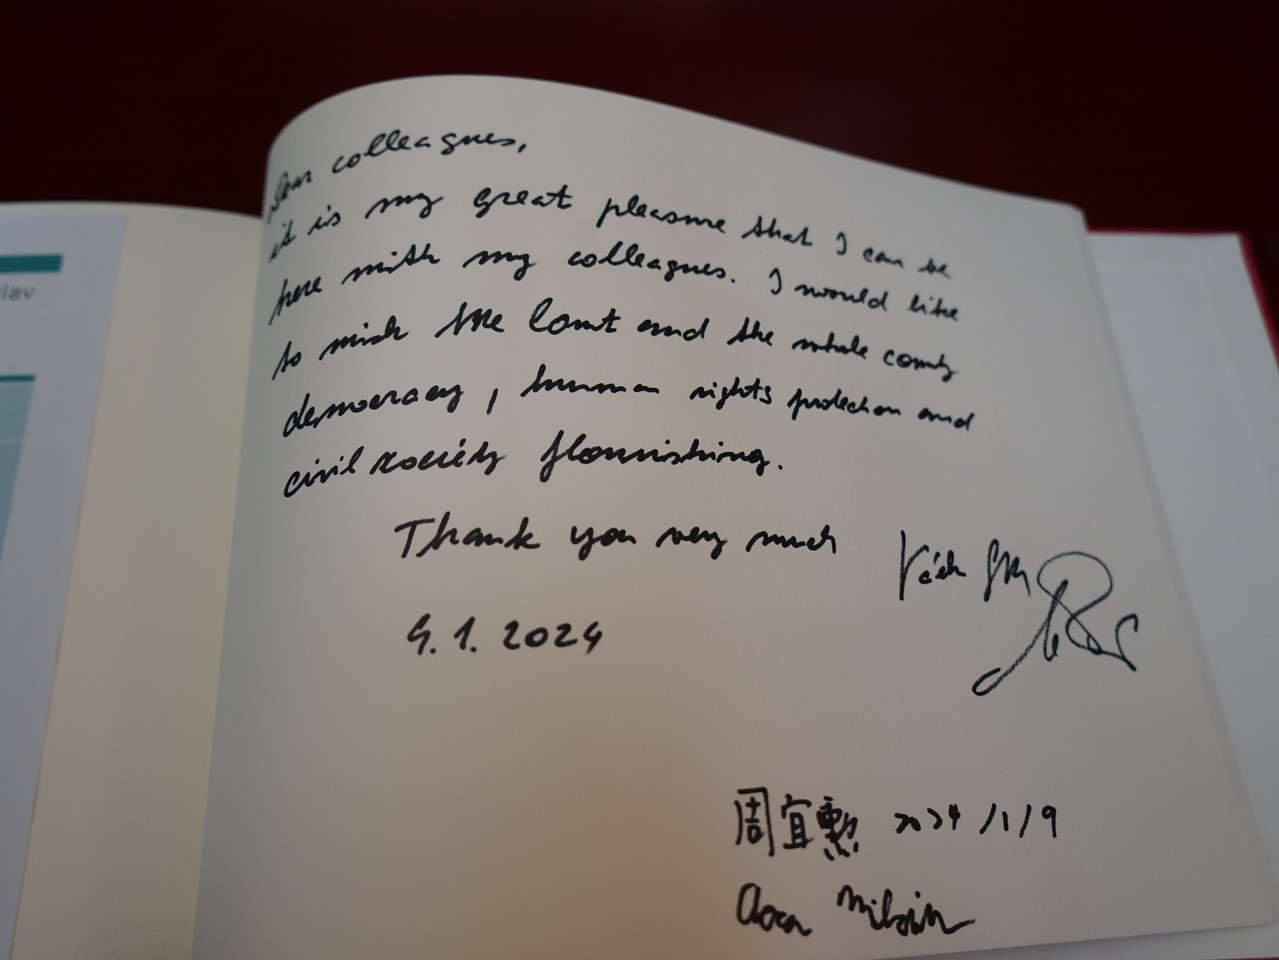 lav
Dear colleagues,
it is my great pleasure that I can be
here with my colleagues. I would like
to wish the Court and the whole county
democracy, human rights protection and
civil society flourishing.
Thank you very much
9.1.2024
周宜勳 2024/1/9